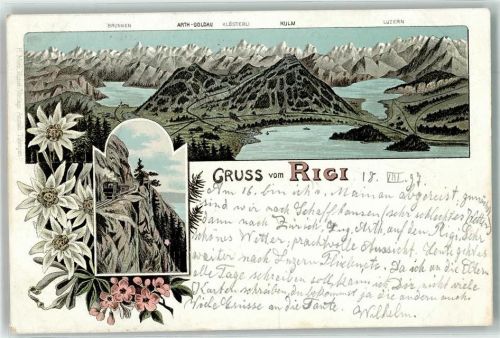 BRUNNEN ARTH-GOLDAU KLÖSTERLI KULM LUZERN
GRUSS VOM RIGI 18. VIII. 97.
Am 16. bin ich v. abgereist, zunächst
sind wir nach Schaffhausen (sehr schlechtes Wetter)
dann nach Zürich, Zug, Arth auf den Rigi. Sehr
schönes Wetter, prachtvolle Aussicht. Heute geht es
weiter nach Luzern. Da ich an die Eltern
alle Tage schreiben soll, kann ich Dir nicht viele
Karten schreiben, Du bekommst ja die andern auch.
Viele Grüsse an die Tante.
Wilhelm.